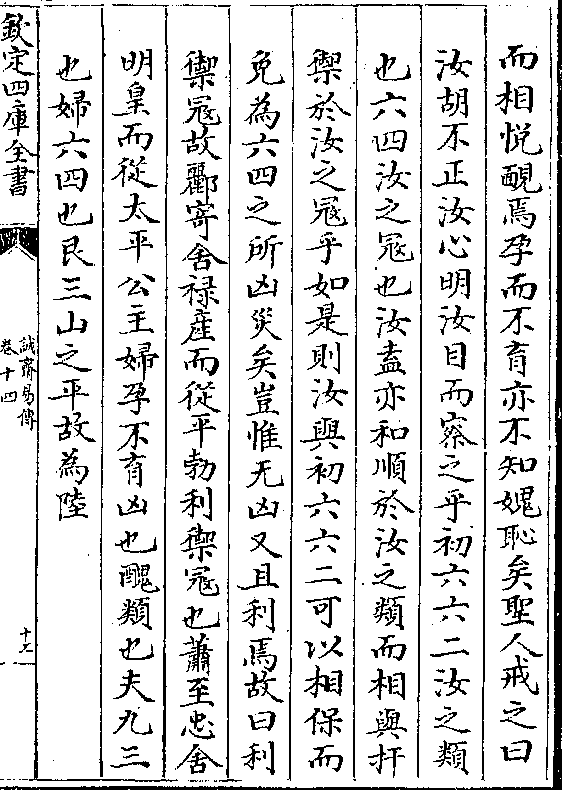 而相悦醜焉孕而不育亦不知媿恥矣聖人戒之曰
汝胡不正汝心明汝目而察之乎初六六二汝之類
也六四汝之冦也汝盍亦和順於汝之類而相與扞
禦於汝之冦乎如是則汝與初六六二可以相保而
免為六四之所凶災矣豈惟无凶又且利焉故曰利
禦冦故酈寄舍禄産而從平勃利禦冦也蕭至忠舍
明皇而從太平公主婦孕不育凶也醜類也夫九三
也婦六四也艮三山之平故為陸
欽定四庫全書
誠齋易傳
卷十四